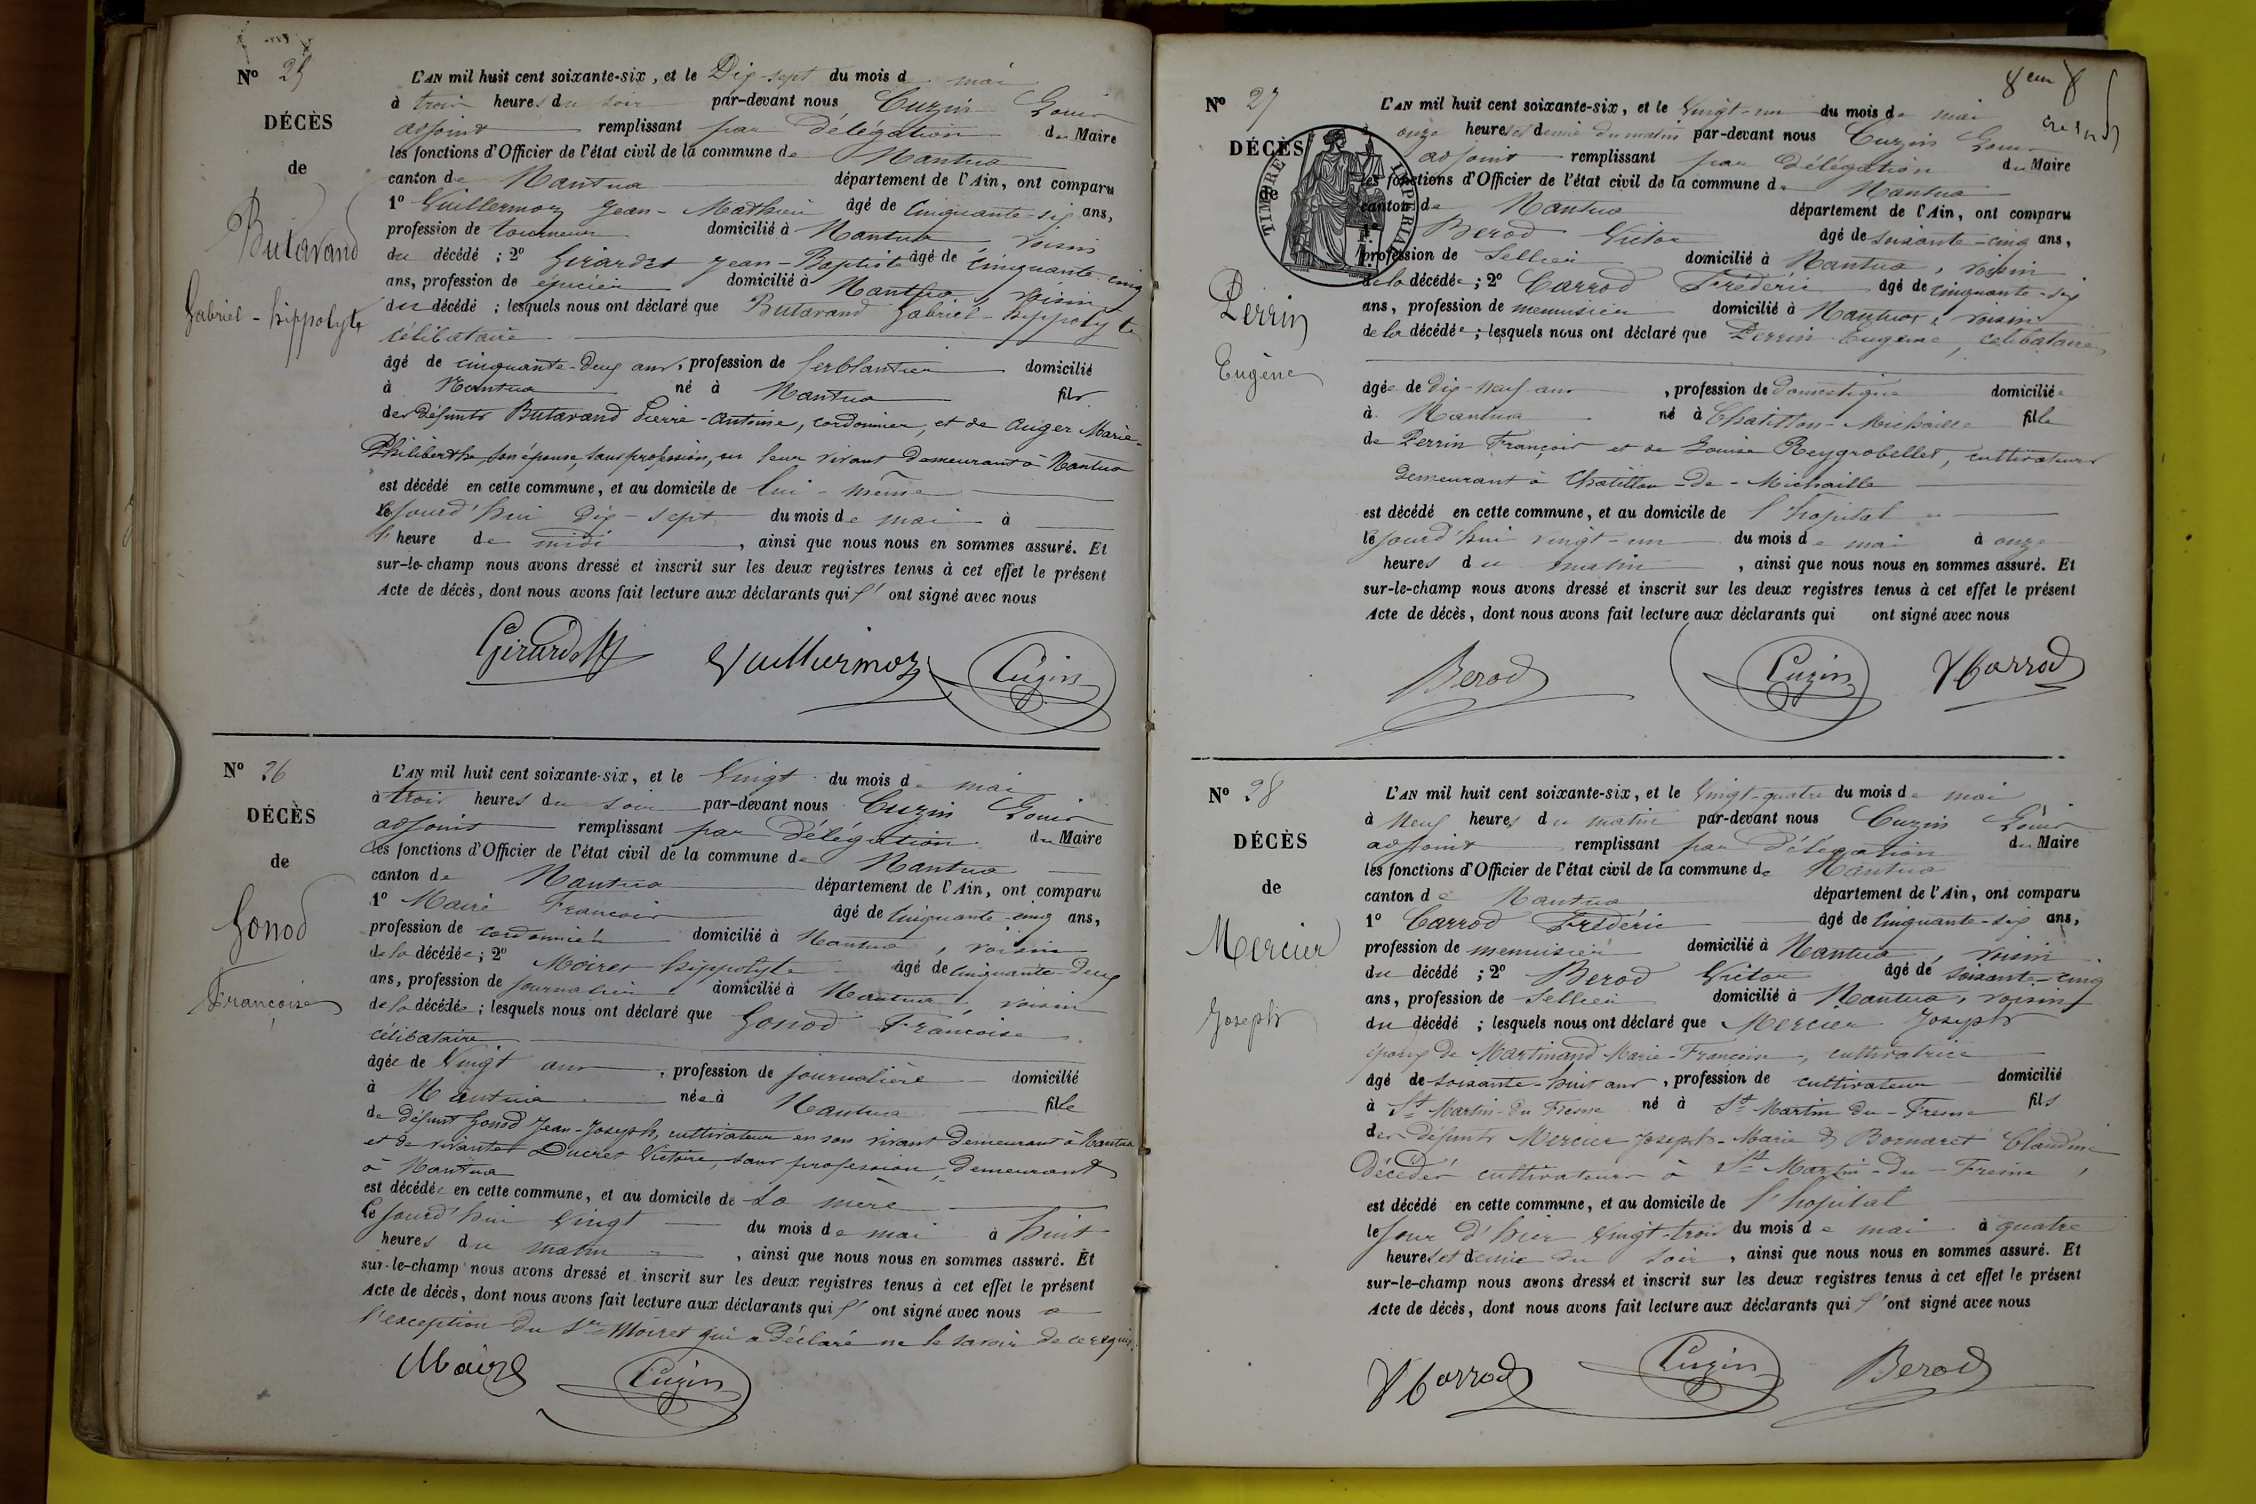 Nº 25
DÉCÈS
de
Butavand
Gabriel-hippolyte
L'AN mil huit cent soixante-six, et le Dix sept du mois de mai
à trois heures du soir par-devant nous Cuzin Louis
adjoint remplissant par délégation du Maire
les fonctions d'Officier de l'état civil de la commune de Nantua
canton de Nantua département de l'Ain, ont comparu
1º Guillermoz Jean-Mathieu âgé de Cinquante-six ans,
profession de tourneur domicilié à Nantua, voisin
du décédé ; 2º Girardet Jean-Baptiste âgé de cinquante-cinq
ans, profession de épicier domicilié à Nantua, voisin
du décédé ; lesquels nous ont déclaré que Butavand Gabriel-hippolyte
célibataire
âgé de cinquante-deux ans, profession de ferblantier domicilié
à Nantua né à Nantua fils
des défunts Butavand Pierre-Antoine, cordonnier, et de Auger Marie-
Philiberthe son épouse, sans profession, en leur vivant demeurant à Nantua
est décédé en cette commune, et au domicile de lui-même
le jourd'hui dix-sept du mois de mai à
l'heure de midi, ainsi que nous nous en sommes assuré. Et
sur-le-champ nous avons dressé et inscrit sur les deux registres tenus à cet effet le présent
Acte de décès, dont nous avons fait lecture aux déclarants qui l'ont signé avec nous
Girardet Guillermoz Cuzin
Nº 26
DÉCÈS
de
Gonod
Françoise
L'AN mil huit cent soixante-six, et le Vingt du mois de mai
à trois heures du soir par-devant nous Cuzin Louis
adjoint remplissant par délégation du Maire
les fonctions d'Officier de l'état civil de la commune de Nantua
canton de Nantua département de l'Ain, ont comparu
1º Maire François âgé de Cinquante-cinq ans,
profession de cordonnier domicilié à Nantua, voisin
de la décédée ; 2º Moiret hippolyte âgé de cinquante-deux
ans, profession de journalier domicilié à Nantua, voisin
de la décédée ; lesquels nous ont déclaré que Gonod Françoise
célibataire
âgée de Vingt ans, profession de journalière domicilié
à Nantua née à Nantua fille
de défunt Gonod Jean-Joseph, cultivateur en son vivant demeurant à Nantua
et de vivante Ducret Victoire, sans profession, demeurant
à Nantua
est décédée en cette commune, et au domicile de La mère
le jourd'hui vingt du mois de mai à huit
heures du matin, ainsi que nous nous en sommes assuré. Et
sur-le-champ nous avons dressé et inscrit sur les deux registres tenus à cet effet le présent
Acte de décès, dont nous avons fait lecture aux déclarants qui l'ont signé avec nous à
l'exception du Sr Moiret qui a déclaré ne le savoir de ce requis.
Maire Cuzin
TIMBRE IMPERIAL
Nº 27
DÉCÈS
de
Perrin
Eugène
L'AN mil huit cent soixante-six, et le Vingt-un du mois de mai
onze heures et demie du matin par-devant nous Cuzin Louis
adjoint remplissant par délégation du Maire
les fonctions d'Officier de l'état civil de la commune de Nantua
canton de Nantua département de l'Ain, ont comparu
Berod Victor âgé de soixante-cinq ans,
profession de Sellier domicilié à Nantua, voisin
de la décédée ; 2º Carrod Frédéric âgé de cinquante-six
ans, profession de menuisier domicilié à Nantua, voisin
de la décédée ; lesquels nous ont déclaré que Perrin Eugénie, célibataire
âgée de dix-neuf ans, profession de domestique domiciliée
à Nantua né à Chatillon-Michaille fille
de Perrin François et de Louise Reygrobellet, cultivateurs
demeurant à Chatillon-de-Michaille
est décédé en cette commune, et au domicile de l'hopital
le jourd'hui vingt-un du mois de mai à onze
heures du matin, ainsi que nous nous en sommes assuré. Et
sur-le-champ nous avons dressé et inscrit sur les deux registres tenus à cet effet le présent
Acte de décès, dont nous avons fait lecture aux déclarants qui ont signé avec nous
Berod Cuzin Carrod
Nº 28
DÉCÈS
de
Mercier
Joseph
L'AN mil huit cent soixante-six, et le Vingt-quatre du mois de mai
à Neuf heures du matin par-devant nous Cuzin Louis
adjoint remplissant par délégation du Maire
les fonctions d'Officier de l'état civil de la commune de Nantua
canton de Nantua département de l'Ain, ont comparu
1º Carrod Frédéric âgé de Cinquante-six ans,
profession de menuisier domicilié à Nantua voisin
du décédé ; 2º Berod Victor âgé de soixante-cinq
ans, profession de Sellier domicilié à Nantua, voisins
du décédé ; lesquels nous ont déclaré que Mercier Joseph
époux de Martinand Marie-Françoise, cultivatrice
âgé de soixante-huit ans, profession de cultivateur domicilié
à St Martin-du Fresne né à St Martin-du-Fresne fils
des défunts Mercier Joseph-Marie & Bornaret Claudine
décédés cultivateurs à St Martin-du-Fresne,
est décédé en cette commune, et au domicile de l'hopital
le jour d'hier Vingt-trois du mois de mai à quatre
heures et demie du soir, ainsi que nous nous en sommes assuré. Et
sur-le-champ nous avons dressé et inscrit sur les deux registres tenus à cet effet le présent
Acte de décès, dont nous avons fait lecture aux déclarants qui l'ont signé avec nous
Carrod Cuzin Berod